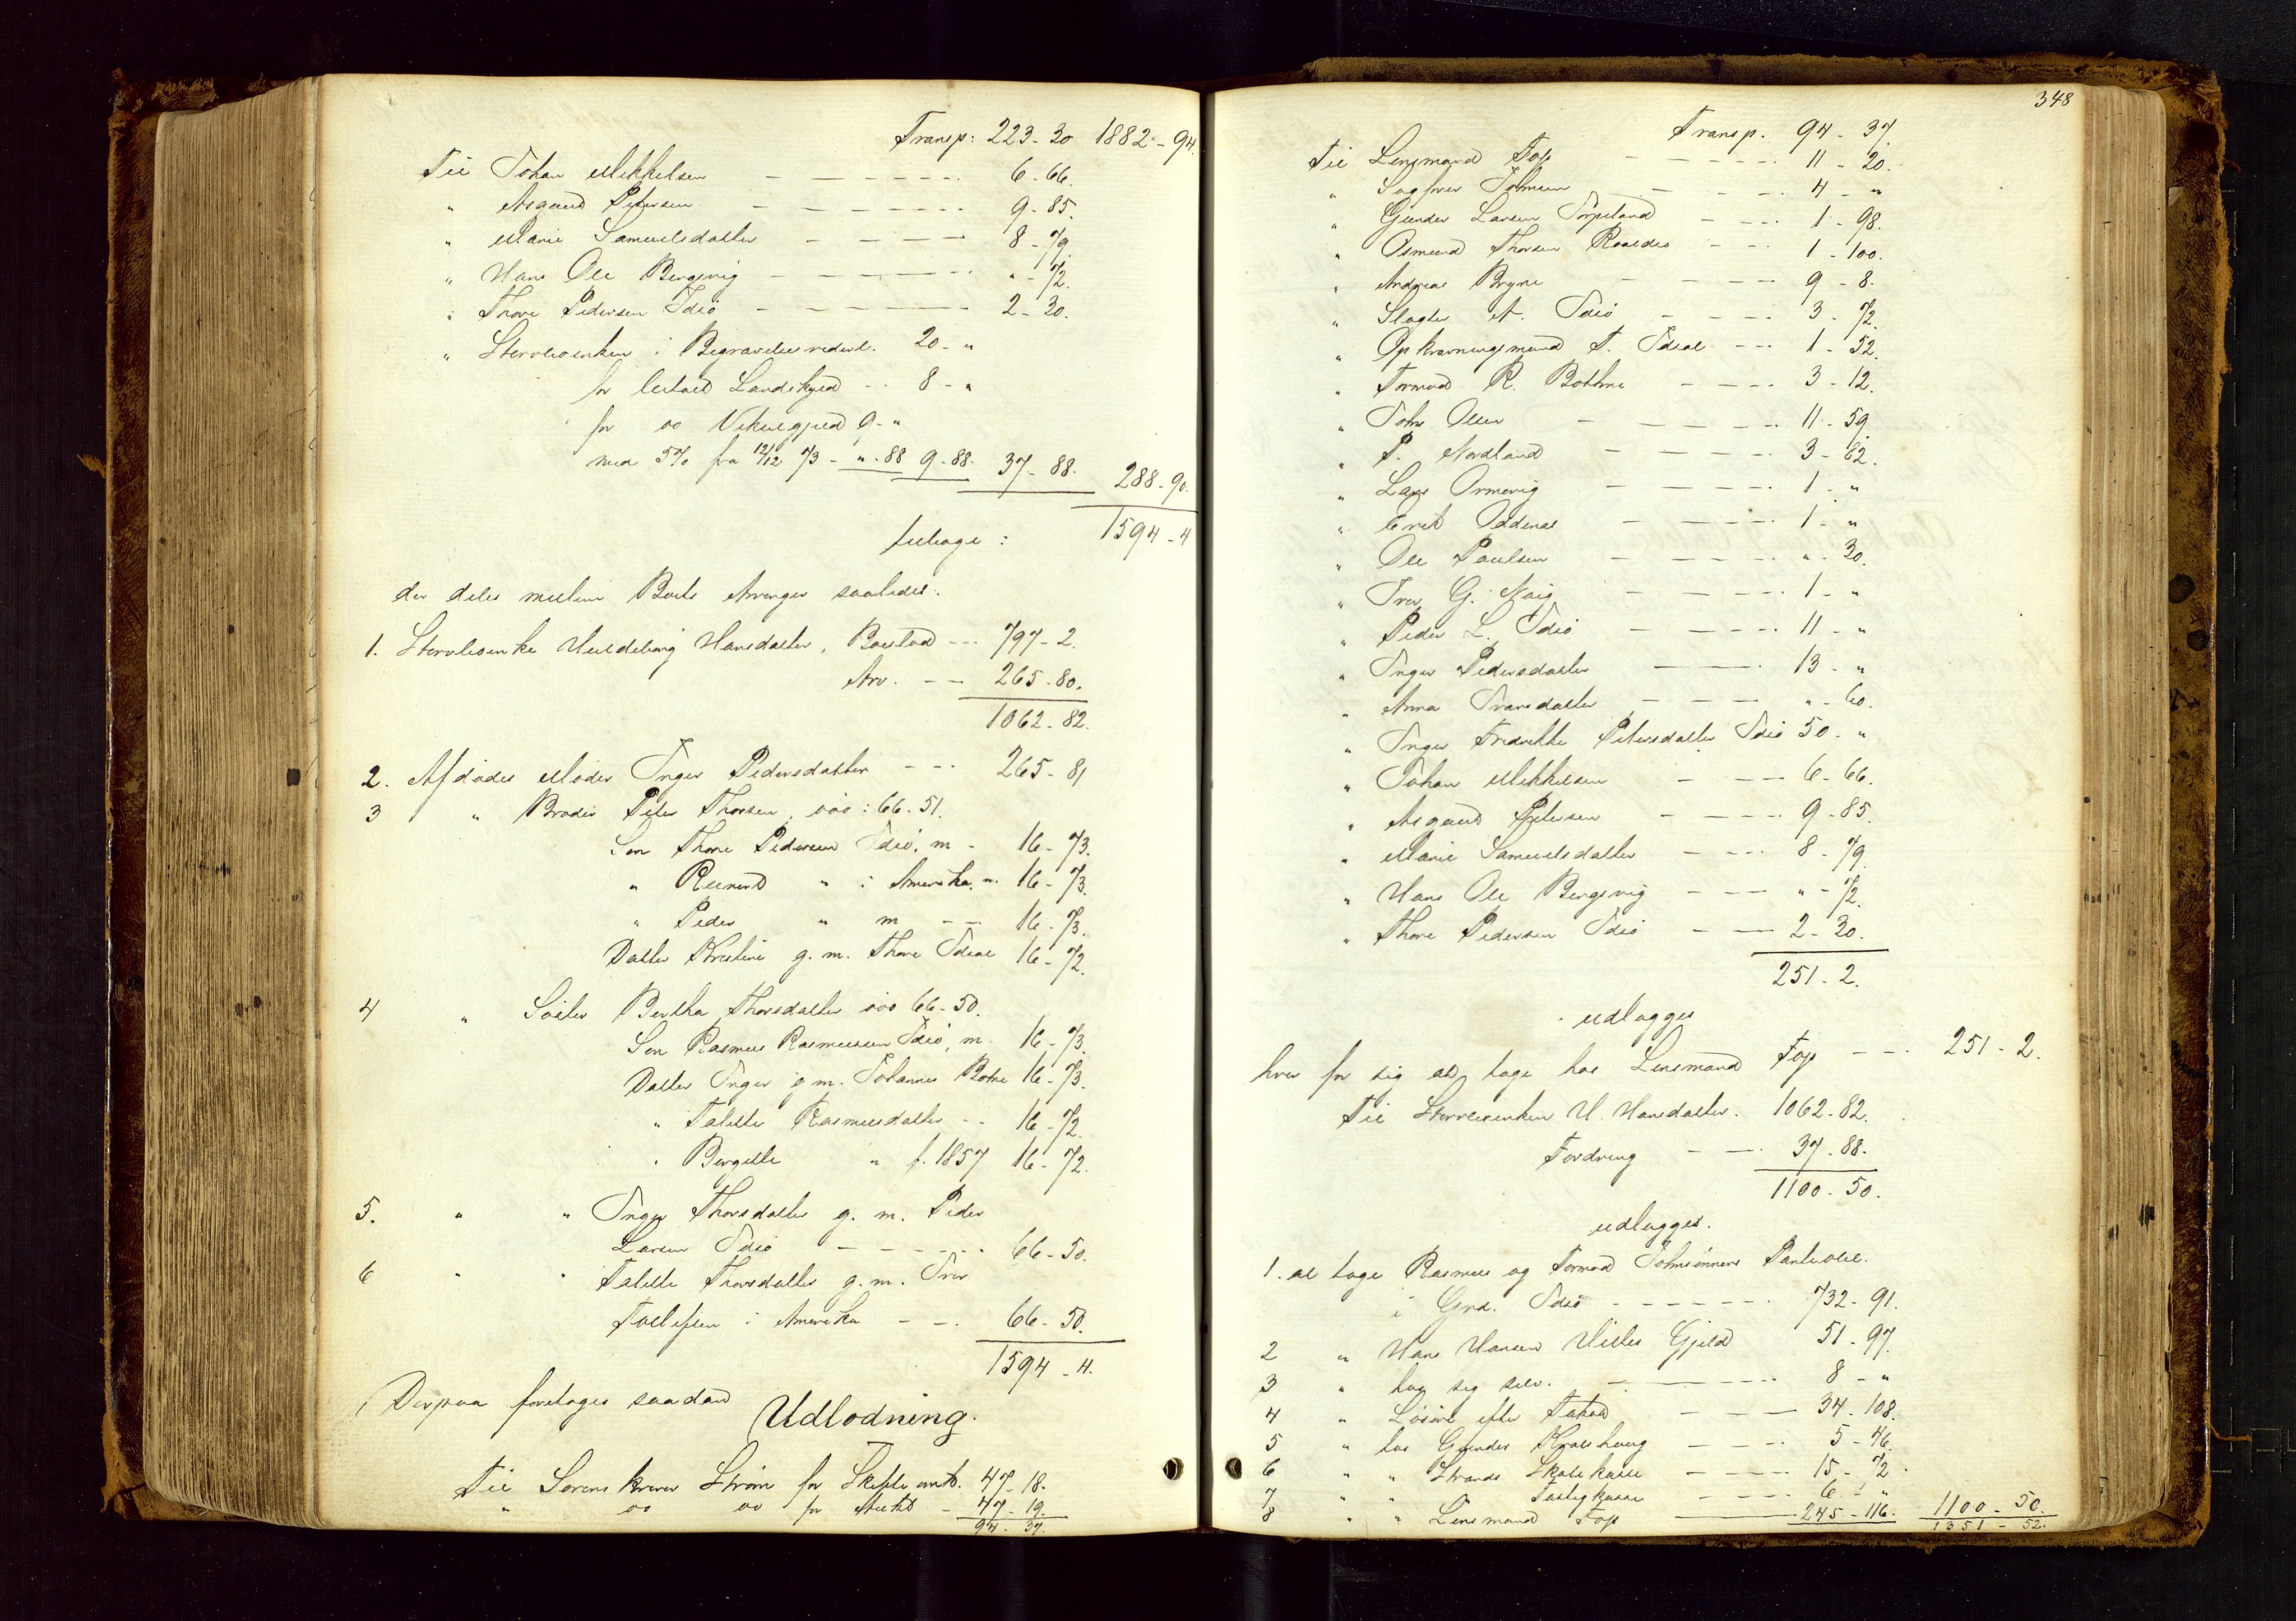 Transp: 223-30 1882-94.
Til Johan Mikkelsen - - - - - - 6-66.
" Asgaud Petersen - - - - - - 9-85.
" Marie Samuelsdatter - - - - - 8-79.
" Hans Ole Bergevig - - - - - - "-72.
" Thore Pedersen Idsö - - - - - - 2-30.
" Stervboenken i Begravelsesredsk. 20-"
for betalt Landskyld - - 8-"
for do Vikulgjæld 9-"
med 5% fra 12/12 73 - "-88 9-88. 37-88. 288-90.
tilbage: 1594-4
der deles mellem Boets Arvinger saaledes:
1. Stervboenke Huldeborg Hansdatter, Boeslod - - - 797-2.
Arv. - - 265-80.
1062-82.
2. Afdødes Moder Inger Pedersdatter - - - 265-81
3 " Broder Peter Thorsen, død: 66-51.
Søn Thore Pedersen Idsö, m - 16-73.
" Reinert " i Amerika. m. 16-73.
" Peder " m - - 16-73.
Datter Kristine g. m. Thore Idsal 16-72.
4 " Søster Bertha Thorsdatter død 66-50.
Søn Rasmus Rasmussen Idsö, m. 16-73.
Datter Inger g m. Johannes Botne 16-73.
" Talette Rasmusdatter - - 16-72.
" Bergitte " f. 1857 16-72.
5. " " Inger Thorsdatter g. m. Peder
Larsen Idsö - - - - - - 66-50.
6 " " Talette Thorsdatter g. m. Iver
Tollefsen i Amerika - - - 66-50.
1594-4.
Derpaa foretoges saadan Udlodning.
Til Sorenskriver Strøm for Skifteomk. 47-18.
" do do for Auktl - 47-19.
94-37.
348
Transp. 94-37.
Til Lensmand Fop - - - - - 11-20.
" Sagfører Johnsen - - - - 4-"
" Gunder Larsen Torpeland - - - - 1-98.
" Osmund Thorsen Raaedes - - - 1-100.
" Andreas Bryne - - - - - 9-8.
" Slagter A. Idsö - - - - 3-72.
" Opkrævningsmand T. Idsal - - - 1-52.
" Tormod R. Bothne - - - - 3-12.
" John Olsen - - - - - - 11-59
" P. Nordland - - - - - 3-62.
" Lars Ormevig - - - - - 1-"
" Erik Oddenæs - - - - - 1-"
" Ole Paulsen - - - - - - "-30.
" Iver G. Naig - - - - - 1-"
" Peder L. Idsö - - - - - 11-"
" Inger Pedersdatter - - - 13-"
" Anna Iversdatter - - - - "-60.
" Inger Fredrikke Petersdatter Idsö 50-"
" Johan Mikkelsen - - - 6-66.
" Asgaud Petersen - - - - 9-85.
" Marie Samuelsdatter - - - - 8-79.
" Hans Ole Bergevig - - - "-72.
" Thore Pedersen Idsö - - 2-30.
251-2.
udlægges
hver for sig at tage hos Lensmand Fop - - - 251-2.
Til Stervboenken H. Hansdatter. 1062-82.
Fordring - - - 37-88.
1100-50.
udlægges.
1. at tage Rasmus og Tormod Johnsønners Panteobl.
i Grd. Idsö - - - - - - 732-91.
2 " Hans Hansen Hilles Gjeld 51-97.
3 " hos sig selv. - - - - - 8-"
4 " Løsøre efter Takst - - - 34-108.
5 " hos Gunder Kvalshaug - - - - 5-46.
6 " " Strands Skolekasse - - - - 15-72.
7 " " " Fattigkasse - - - - 6-"
8 " " Lensmand Fop - - 245-116. 1100-50.
1351-52.